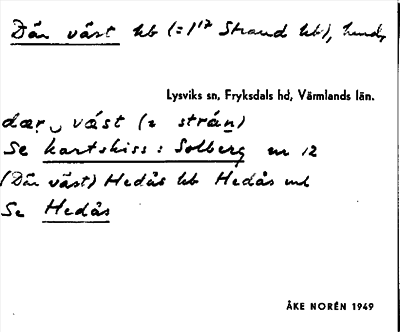 Där väst hb (= 1/17 Strand hb), hmd,
Lysviks sn, Fryksdals hd, Värmlands län.
dær väst (= strán)
Se kartskiss: Solberg nr 12
(Där väst) Hedås hb Hedås
Se Hedås
ÅKE NORÉN 1949